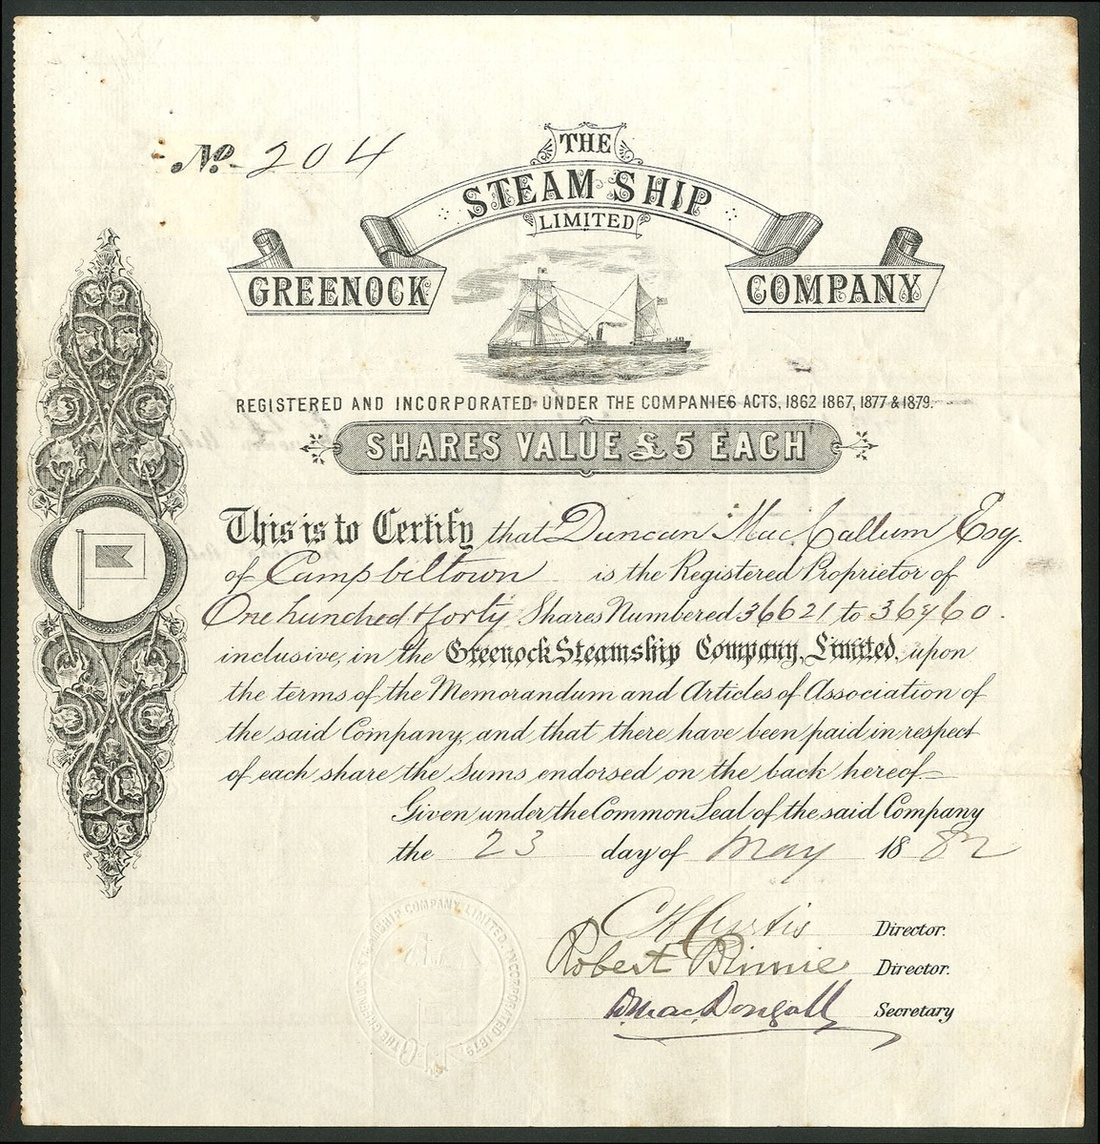 No. 204
THE
STEAM SHIP
LIMITED
GREENOCK
COMPANY
REGISTERED AND INCORPORATED UNDER THE COMPANIES ACTS, 1862 1867, 1877 & 1879.
SHARES VALUE £5 EACH
This is to Certify that Duncan MacCallum Esq.
of Campbiltown is the Registered Proprietor of
One hundred & forty Shares Numbered 36621 to 36760.
inclusive, in the Greenock Steamship Company, Limited, upon
the terms of the Memorandum and Articles of Association of
the said Company, and that there have been paid in respect
of each share the Sums endorsed on the back hereof.
Given under the Common Seal of the said Company
the 23 day of May 1882
C H Curtis Director.
Robert Binnie Director.
D MacDougall Secretary
THE GREENOCK STEAMSHIP COMPANY, LIMITED, INCORPORATED 1879.